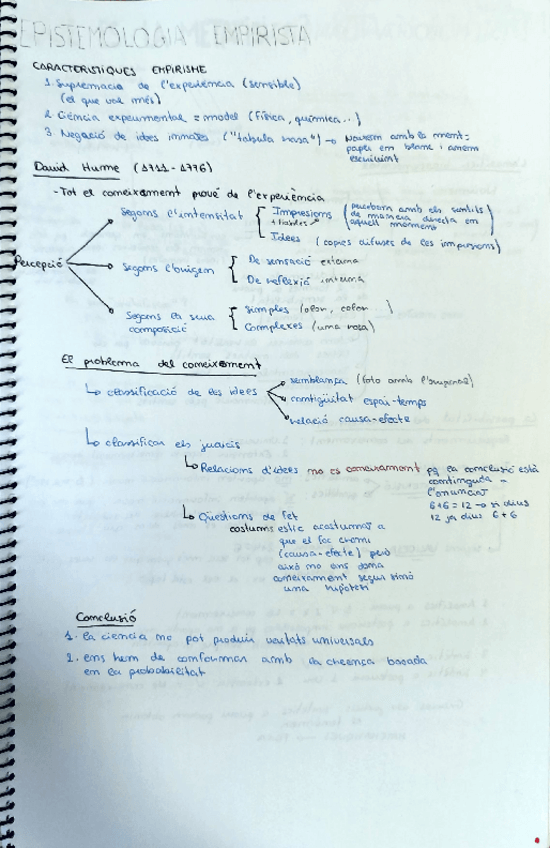 EPISTEMOLOGIA EMPIRISTA
CARACTERÍSTIQUES EMPIRISME
1. Supremacia de l'experiència (sensible)
(el que val més)
2. Ciència experimental = model (física, química...)
3. Negació de idees innates ("tabula rasa") → Naixem amb la ment:
paper en blanc i anem
escrivint
David Hume (1711-1776)
- Tot el coneixement prové de l'experiència
Percepció
Segons l'intensitat
Impresions (percebem amb els sentits
de manera directa en
aquell moment)
Idees (copies difuses de les impresions)
Segons l'origen
De sensació externa
De reflexió interna
Segons la seua
composició
Simples (olor, color...)
Complexes (una rosa)
El problema del coneixement
classificació de les idees
semblança (foto amb l'original)
contigüitat espai-temps
relació causa-efecte
classificar els judicis
Relacions d'idees no es coneixement pq la conclusió està
continguda a
l'enunciat
6+6=12 → si dius
12 ja dius 6+6
Qüestions de fet
costums estic acostumat a
que el foc cremi
(causa-efecte) però
això no ens dona
coneixement segur sinó
una hipòtesi
Conclusió
1. la ciencia no pot produir veritats universals
2. ens hem de conformar amb la creença basada
en la probabilitat